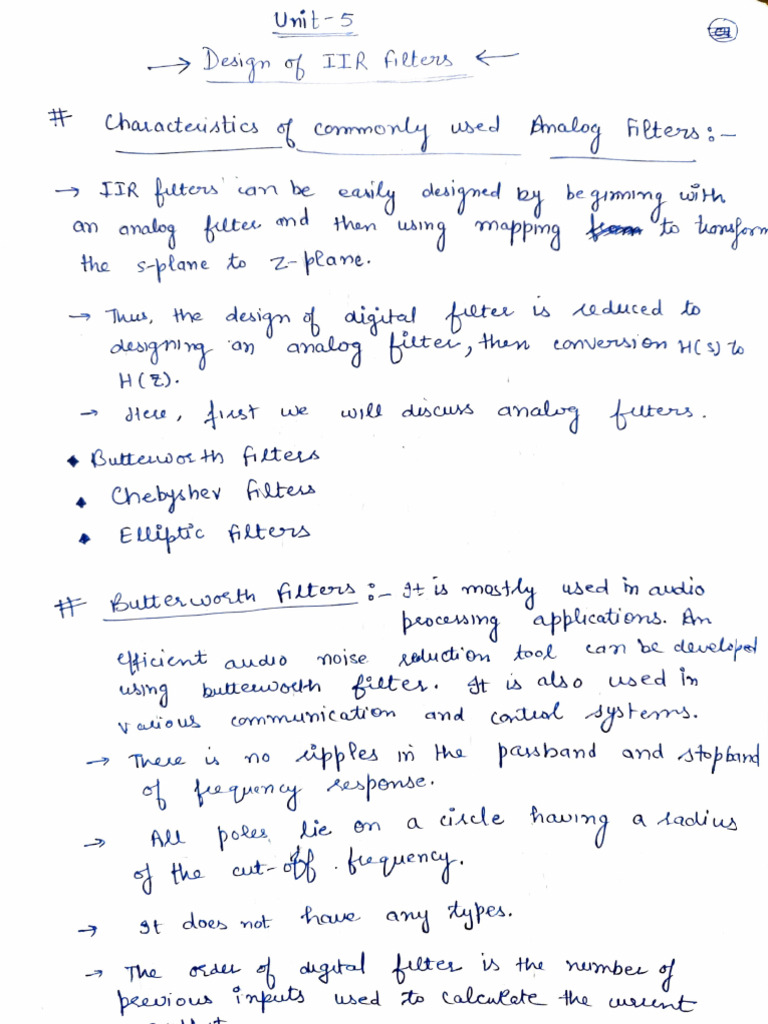 Unit-5
→ Design of IIR filters ←
# Characteristics of commonly used Analog Filters:-
→ IIR filters can be easily designed by beginning with
an analog filter and then using mapping to transform
the s-plane to z-plane.
→ Thus, the design of digital filter is reduced to
designing an analog filter, then conversion H(s) to
H(z).
→ Here, first we will discuss analog filters.
◆ Butterworth filters
◆ Chebyshev filters
◆ Elliptic filters
# Butterworth filters:- It is mostly used in audio
processing applications. An
efficient audio noise reduction tool can be developed
using butterworth filter. It is also used in
various communication and control systems.
→ There is no ripples in the passband and stopband
of frequency response.
→ All poles lie on a circle having a radius
of the cut-off frequency.
→ It does not have any types.
→ The order of digital filter is the number of
previous inputs used to calculate the current